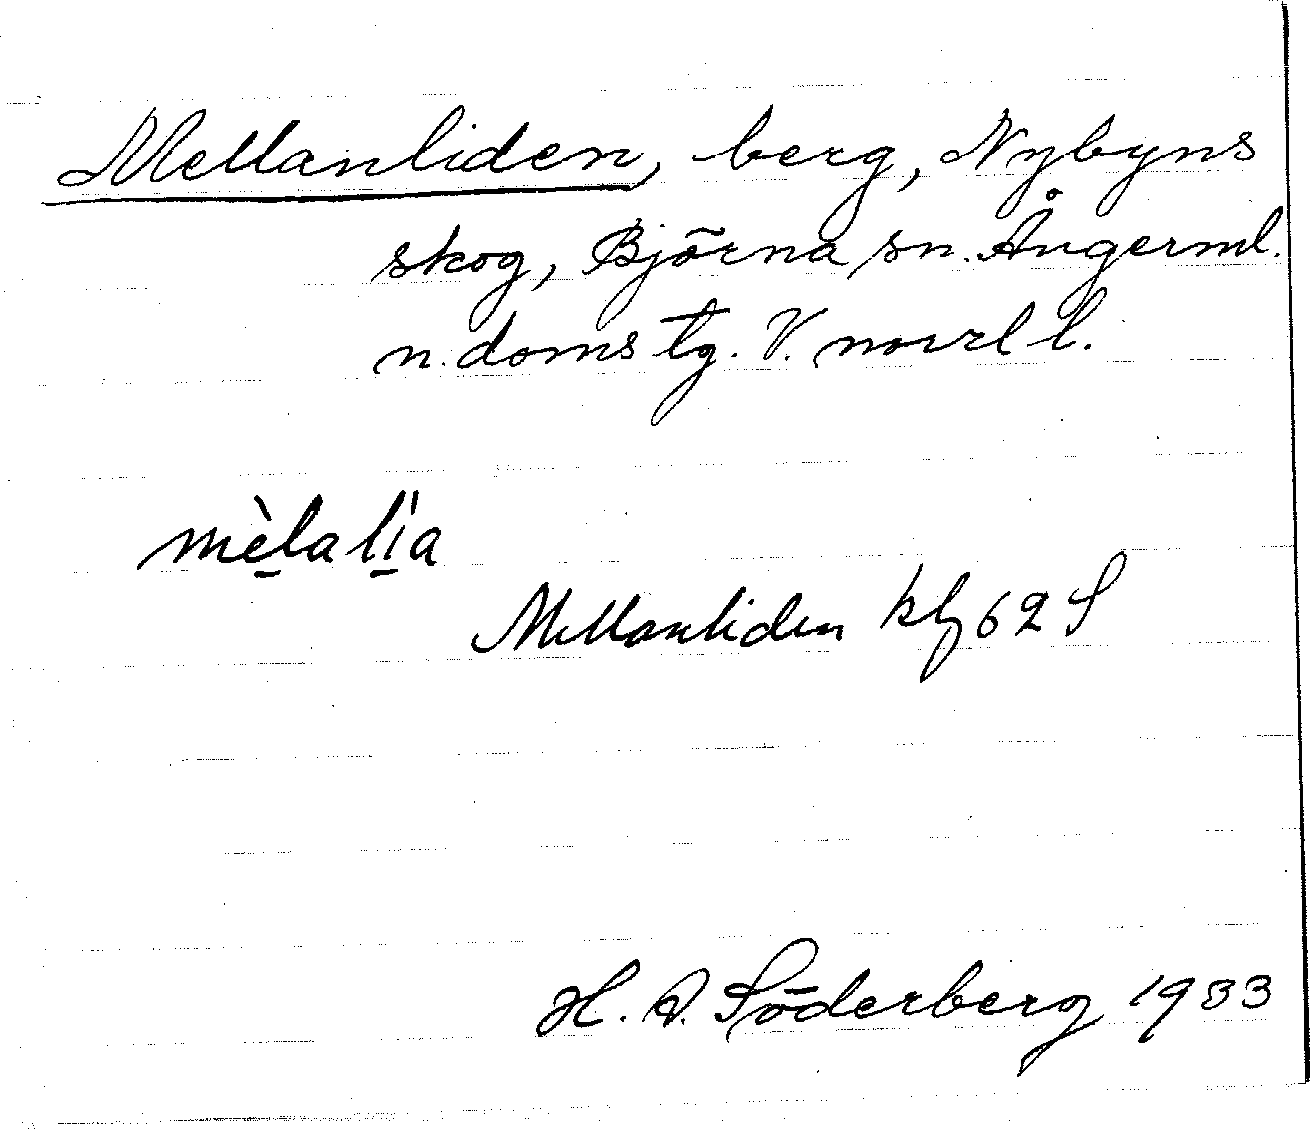 Mellanliden, berg, Nybyns
skog, Björna sn. Ångerml.
n. doms tg. V. norrl l.
mèlalìa
Mellanliden kbl 62 S
H. D. Söderberg 1933